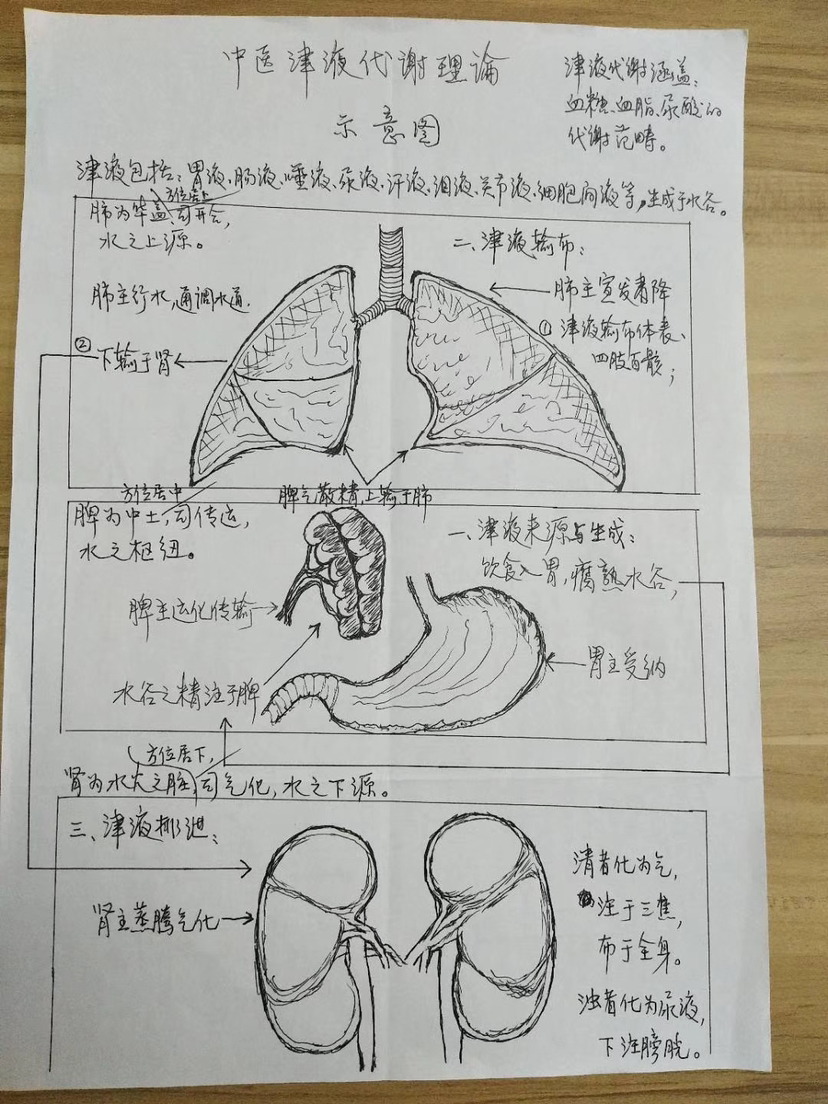 中医津液代谢理论
示意图
津液代谢涵盖:
血糖、血脂、尿酸的
代谢范畴。
津液包括:胃液、肠液、唾液、尿液、汗液、泪液、关节液、细胞间液等,生成于水谷。
方位居上
肺为华盖,司开合,
水之上源。
肺主行水,通调水道.
② 下输于肾
二、津液输布:
肺主宣发肃降
① 津液输布体表、
四肢百骸;
脾气散精,上输于肺
方位居中
脾为中土,司传运,
水之枢纽。
脾主运化传输
水谷之精注于脾
一、津液来源与生成:
饮食入胃,腐熟水谷,
胃主受纳
方位居下,
肾为水火之脏,司气化,水之下源。
三、津液排泄:
肾主蒸腾气化
清者化为气,
注于三焦,
布于全身。
浊者化为尿液,
下注膀胱。